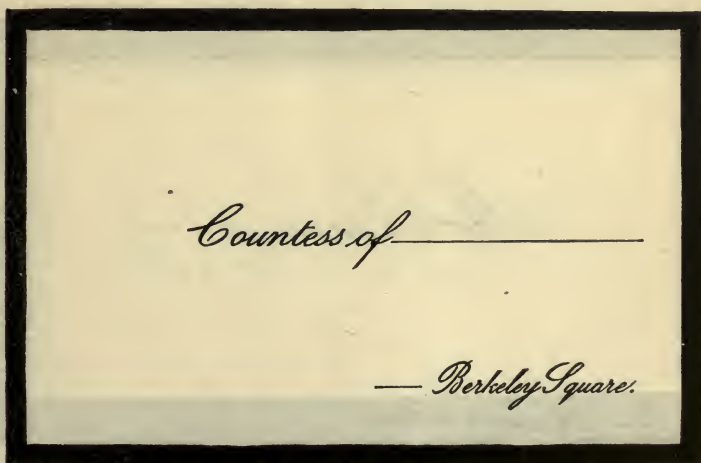 Countess of ————
— Berkeley Square.